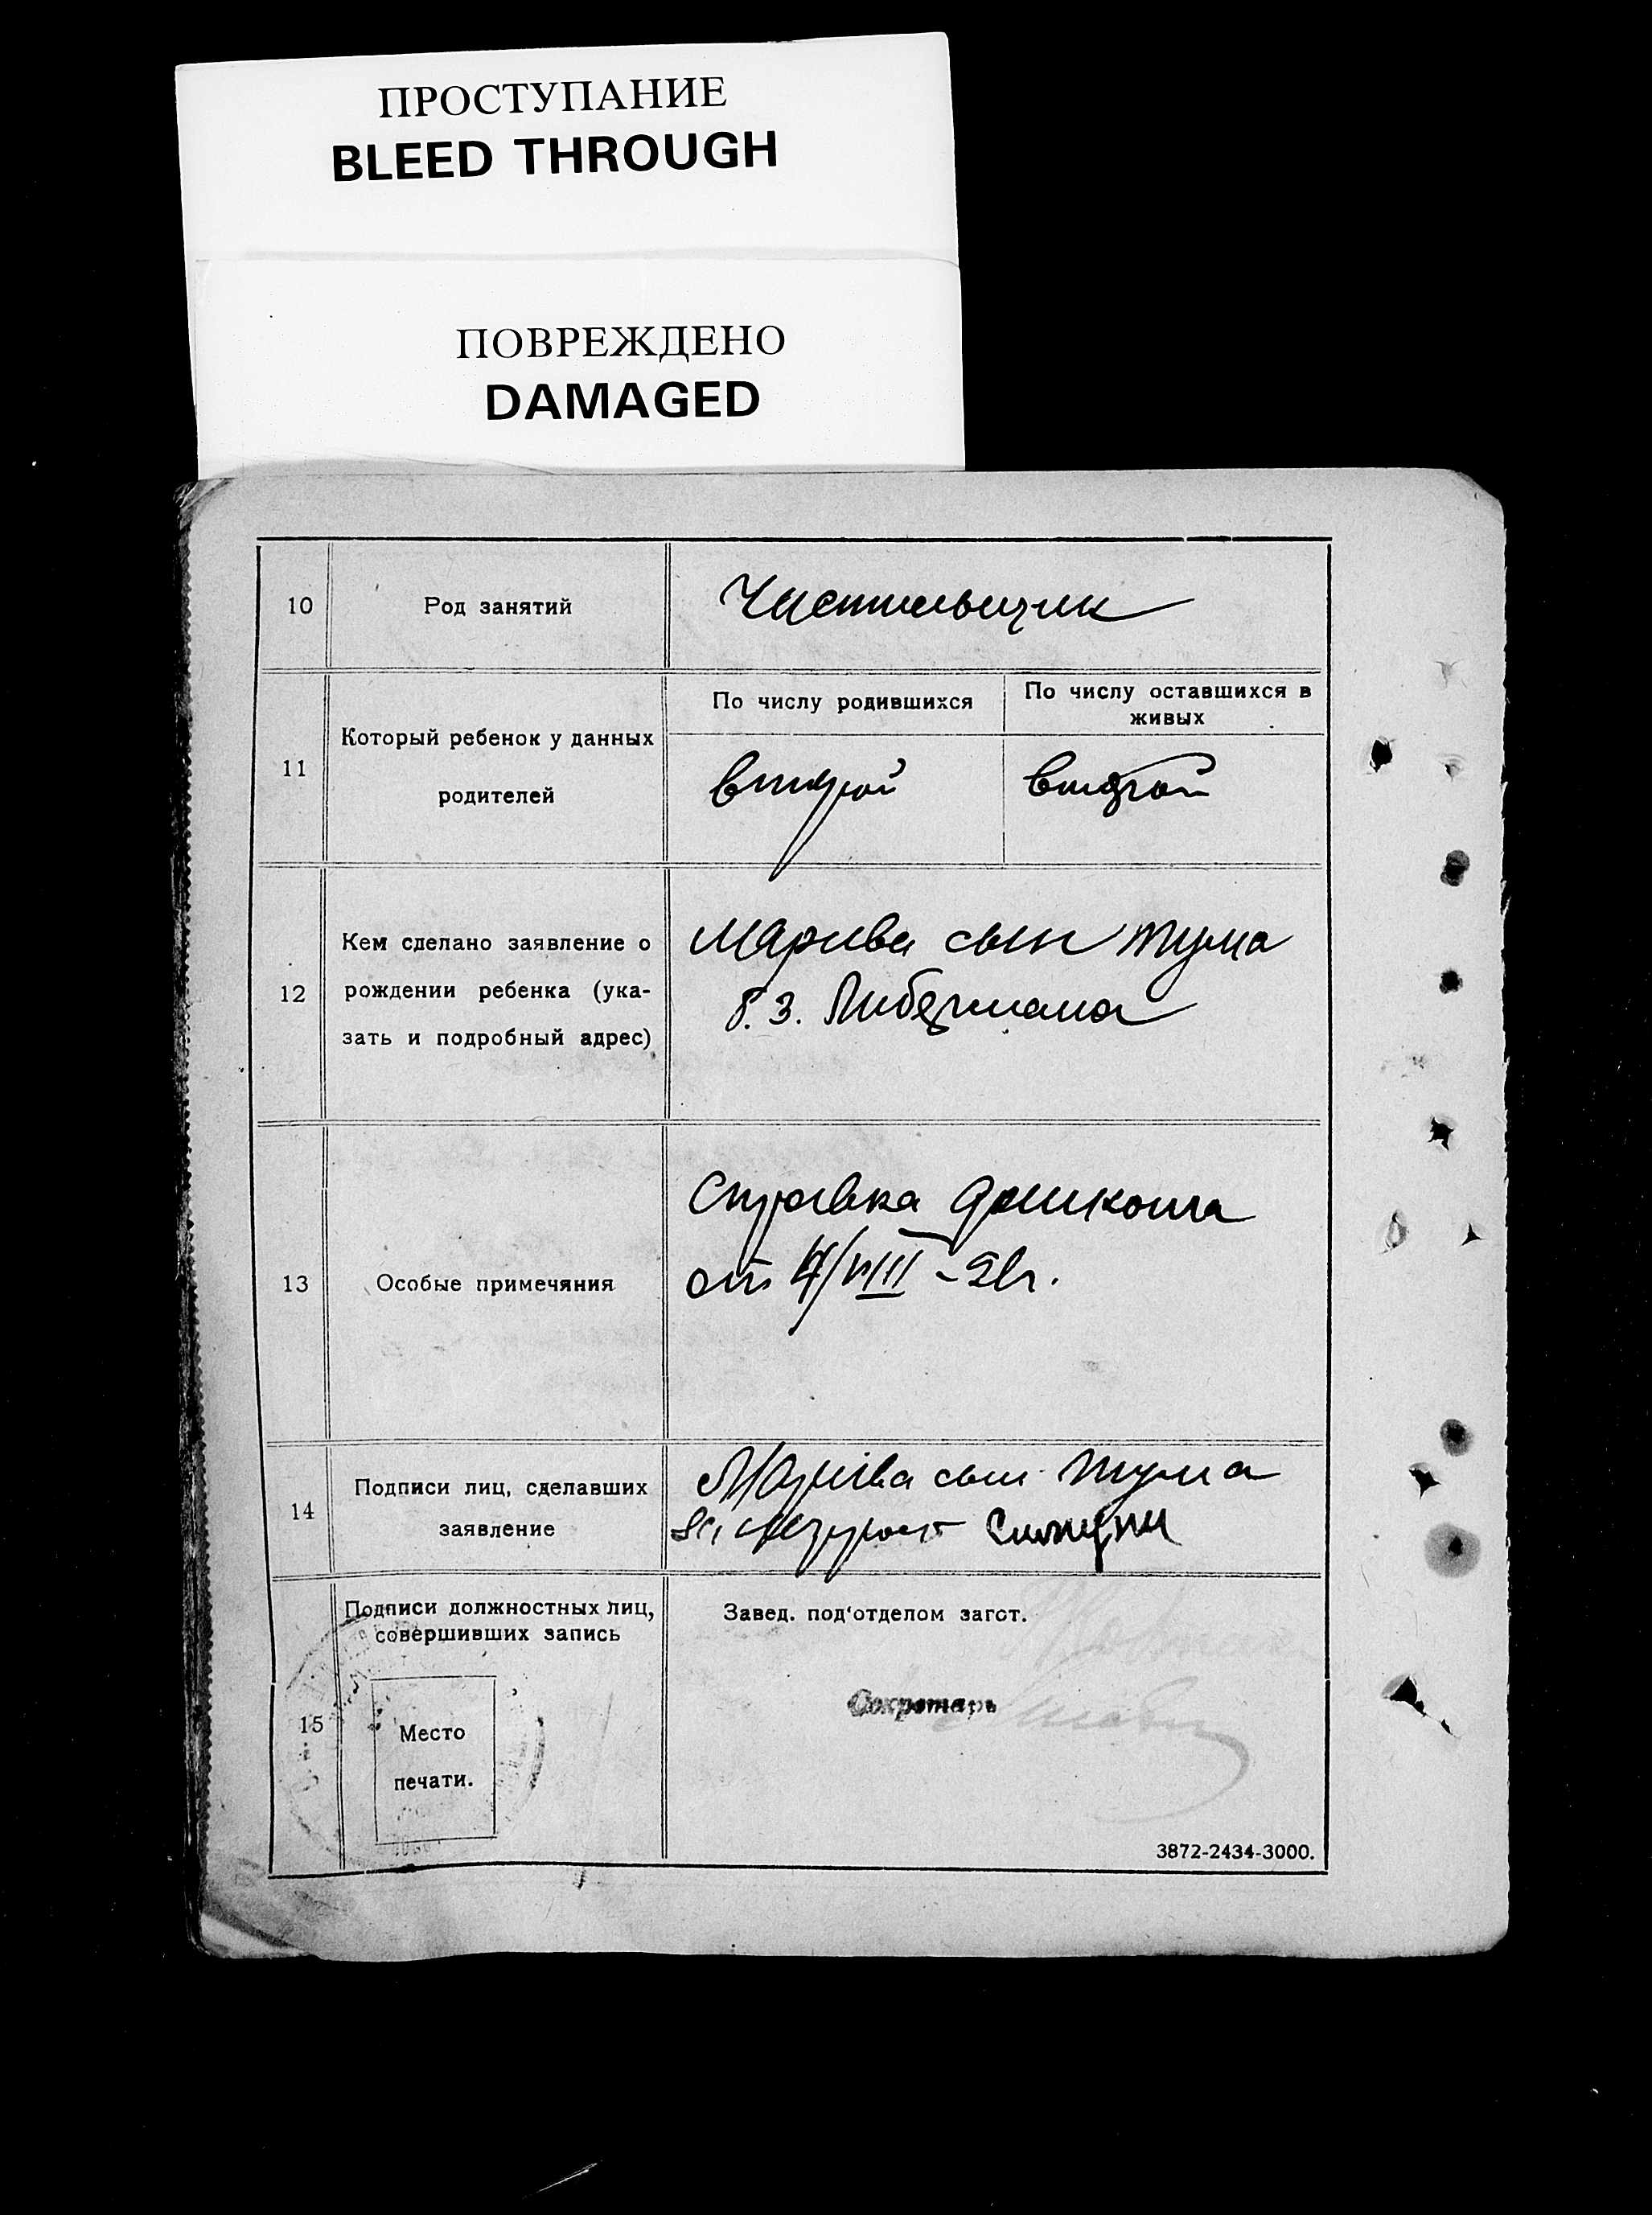 ПРОСТУПАНИЕ
BLEED THROUGH
ПОВРЕЖДЕНО
DAMAGED
10 Род занятий Чистильщик
По числу родившихся По числу оставшихся в
живых
11 Который ребенок у данных
родителей
второй второй
12 Кем сделано заявление о
рождении ребенка (ука-
зать и подробный адрес)
сын
Либермана
13 Особые примечяния
Справка домкома
от /VIII
14 Подписи лиц, сделавших
заявление
сын
15 Подписи должностных лиц,
совершивших запись
Место
печати.
Завед. под‘отделом загст.
Секретарь
3872-2434-3000.